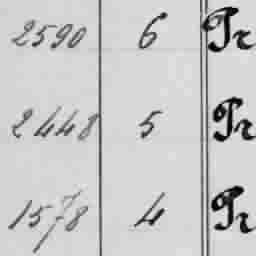 2590 6 Pr
2448 5 Pr
1578 4 Pr